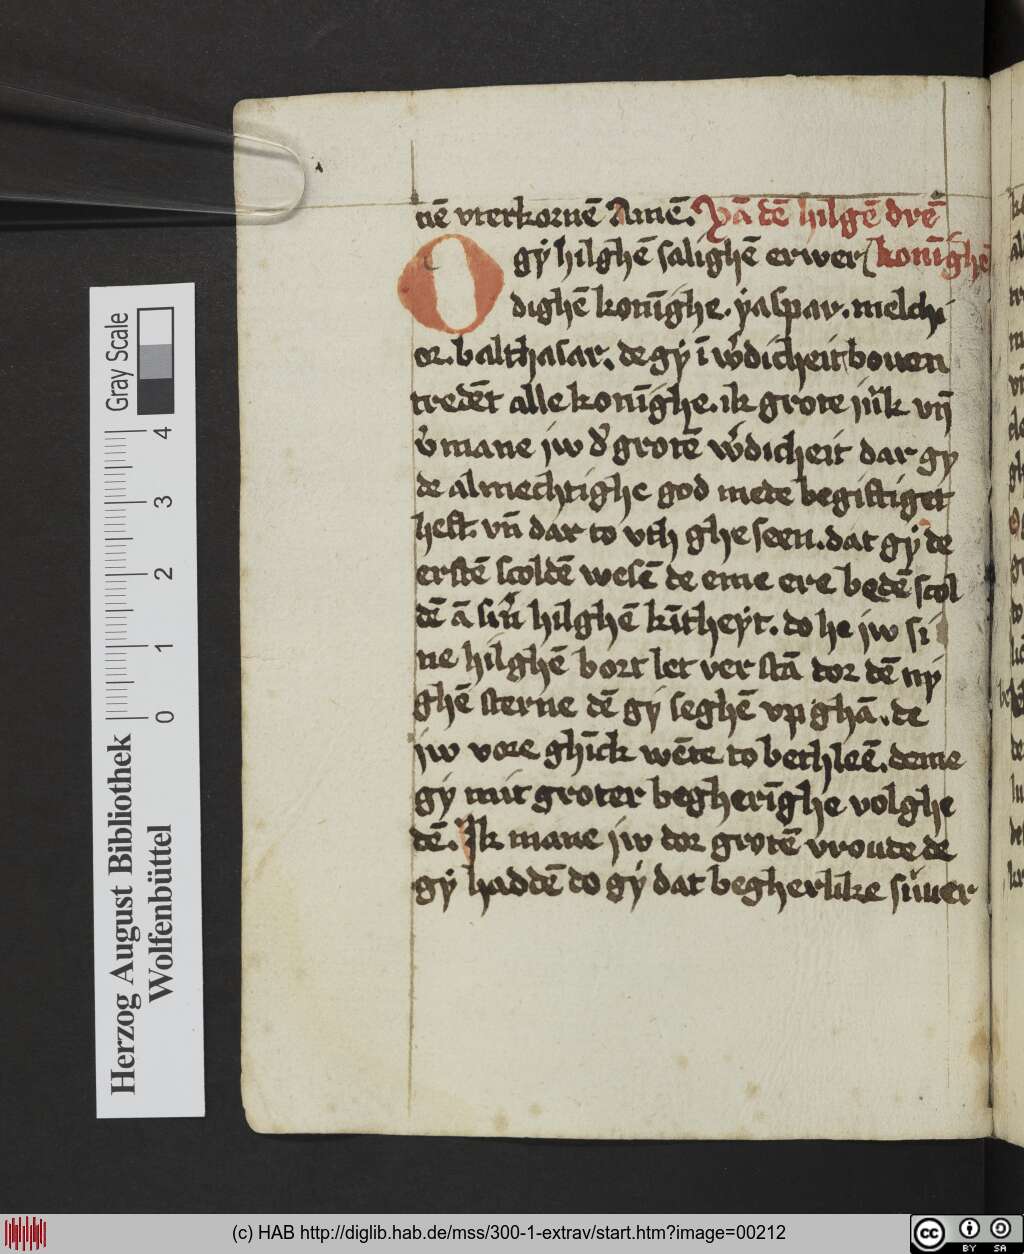 nē vterkornē Amē. Vā dē hilgē drē
O gÿ hilghē salighē erwer konīghē
dighē konīghe. ÿaspar. melchi
or. balthasar. de gÿ ī w'dicheit bouen
tredēt alle konīghe. ik grote iuͦk vn̄
v'mane iw d' grotē w'dicheit dar gy
de almechtighe god mede begiftiget
heft. vn̄ dar to vth ghe seen. dat gÿ de
erstē scoldē wesē de eme ere bedē scol
dē ā sin' hilghē kītheÿt. do he iw si
ne hilghē bort let ver stā dor dē nÿ
ghē sterne dē gÿ seghē vp ghā. de
iw vore ghīck wēte to bethleē. deme
gÿ mit groter begherīghe volghe
dē. Ik mane iw dor grotē vroude de
gÿ haddē do gÿ dat begherlike suͦuer
Herzog August Bibliothek
Wolfenbüttel
Gray Scale
0 1 2 3 4
(c) HAB http://diglib.hab.de/mss/300-1-extrav/start.htm?image=00212
cc BY SA